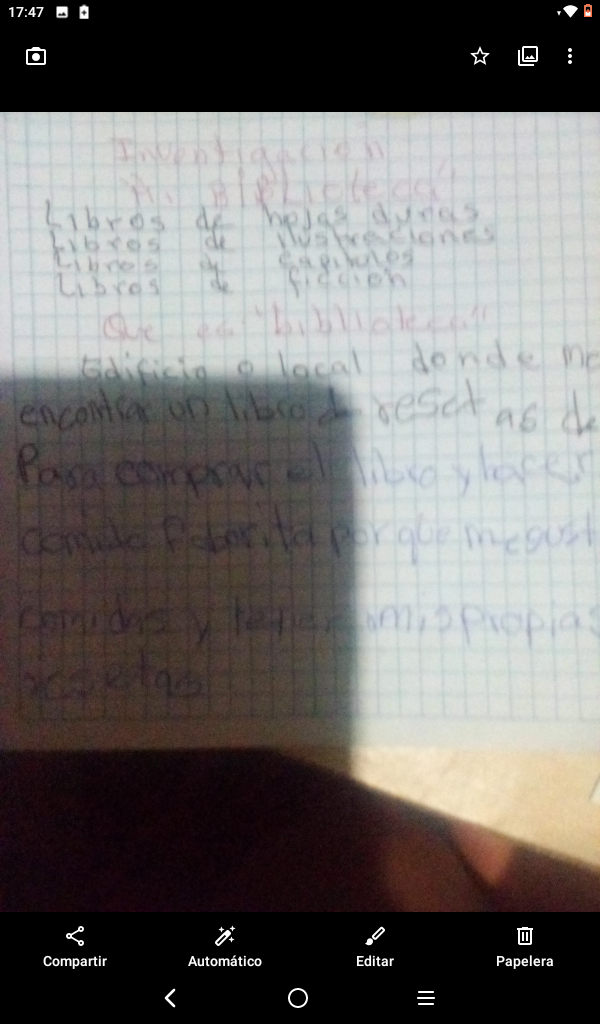 17:47
Investigación
Mi Biblioteca
Libros de hojas duras
Libros de ilustraciones
Libros de capitulos
Libros de ficción
Que es "biblioteca"
Edificio o local donde me
encontrar un libro de resetas de
Para comprar el libro y hacer
comida faborita porque me gust
comidas y tener mis propias
resetas
Compartir
Automático
Editar
Papelera